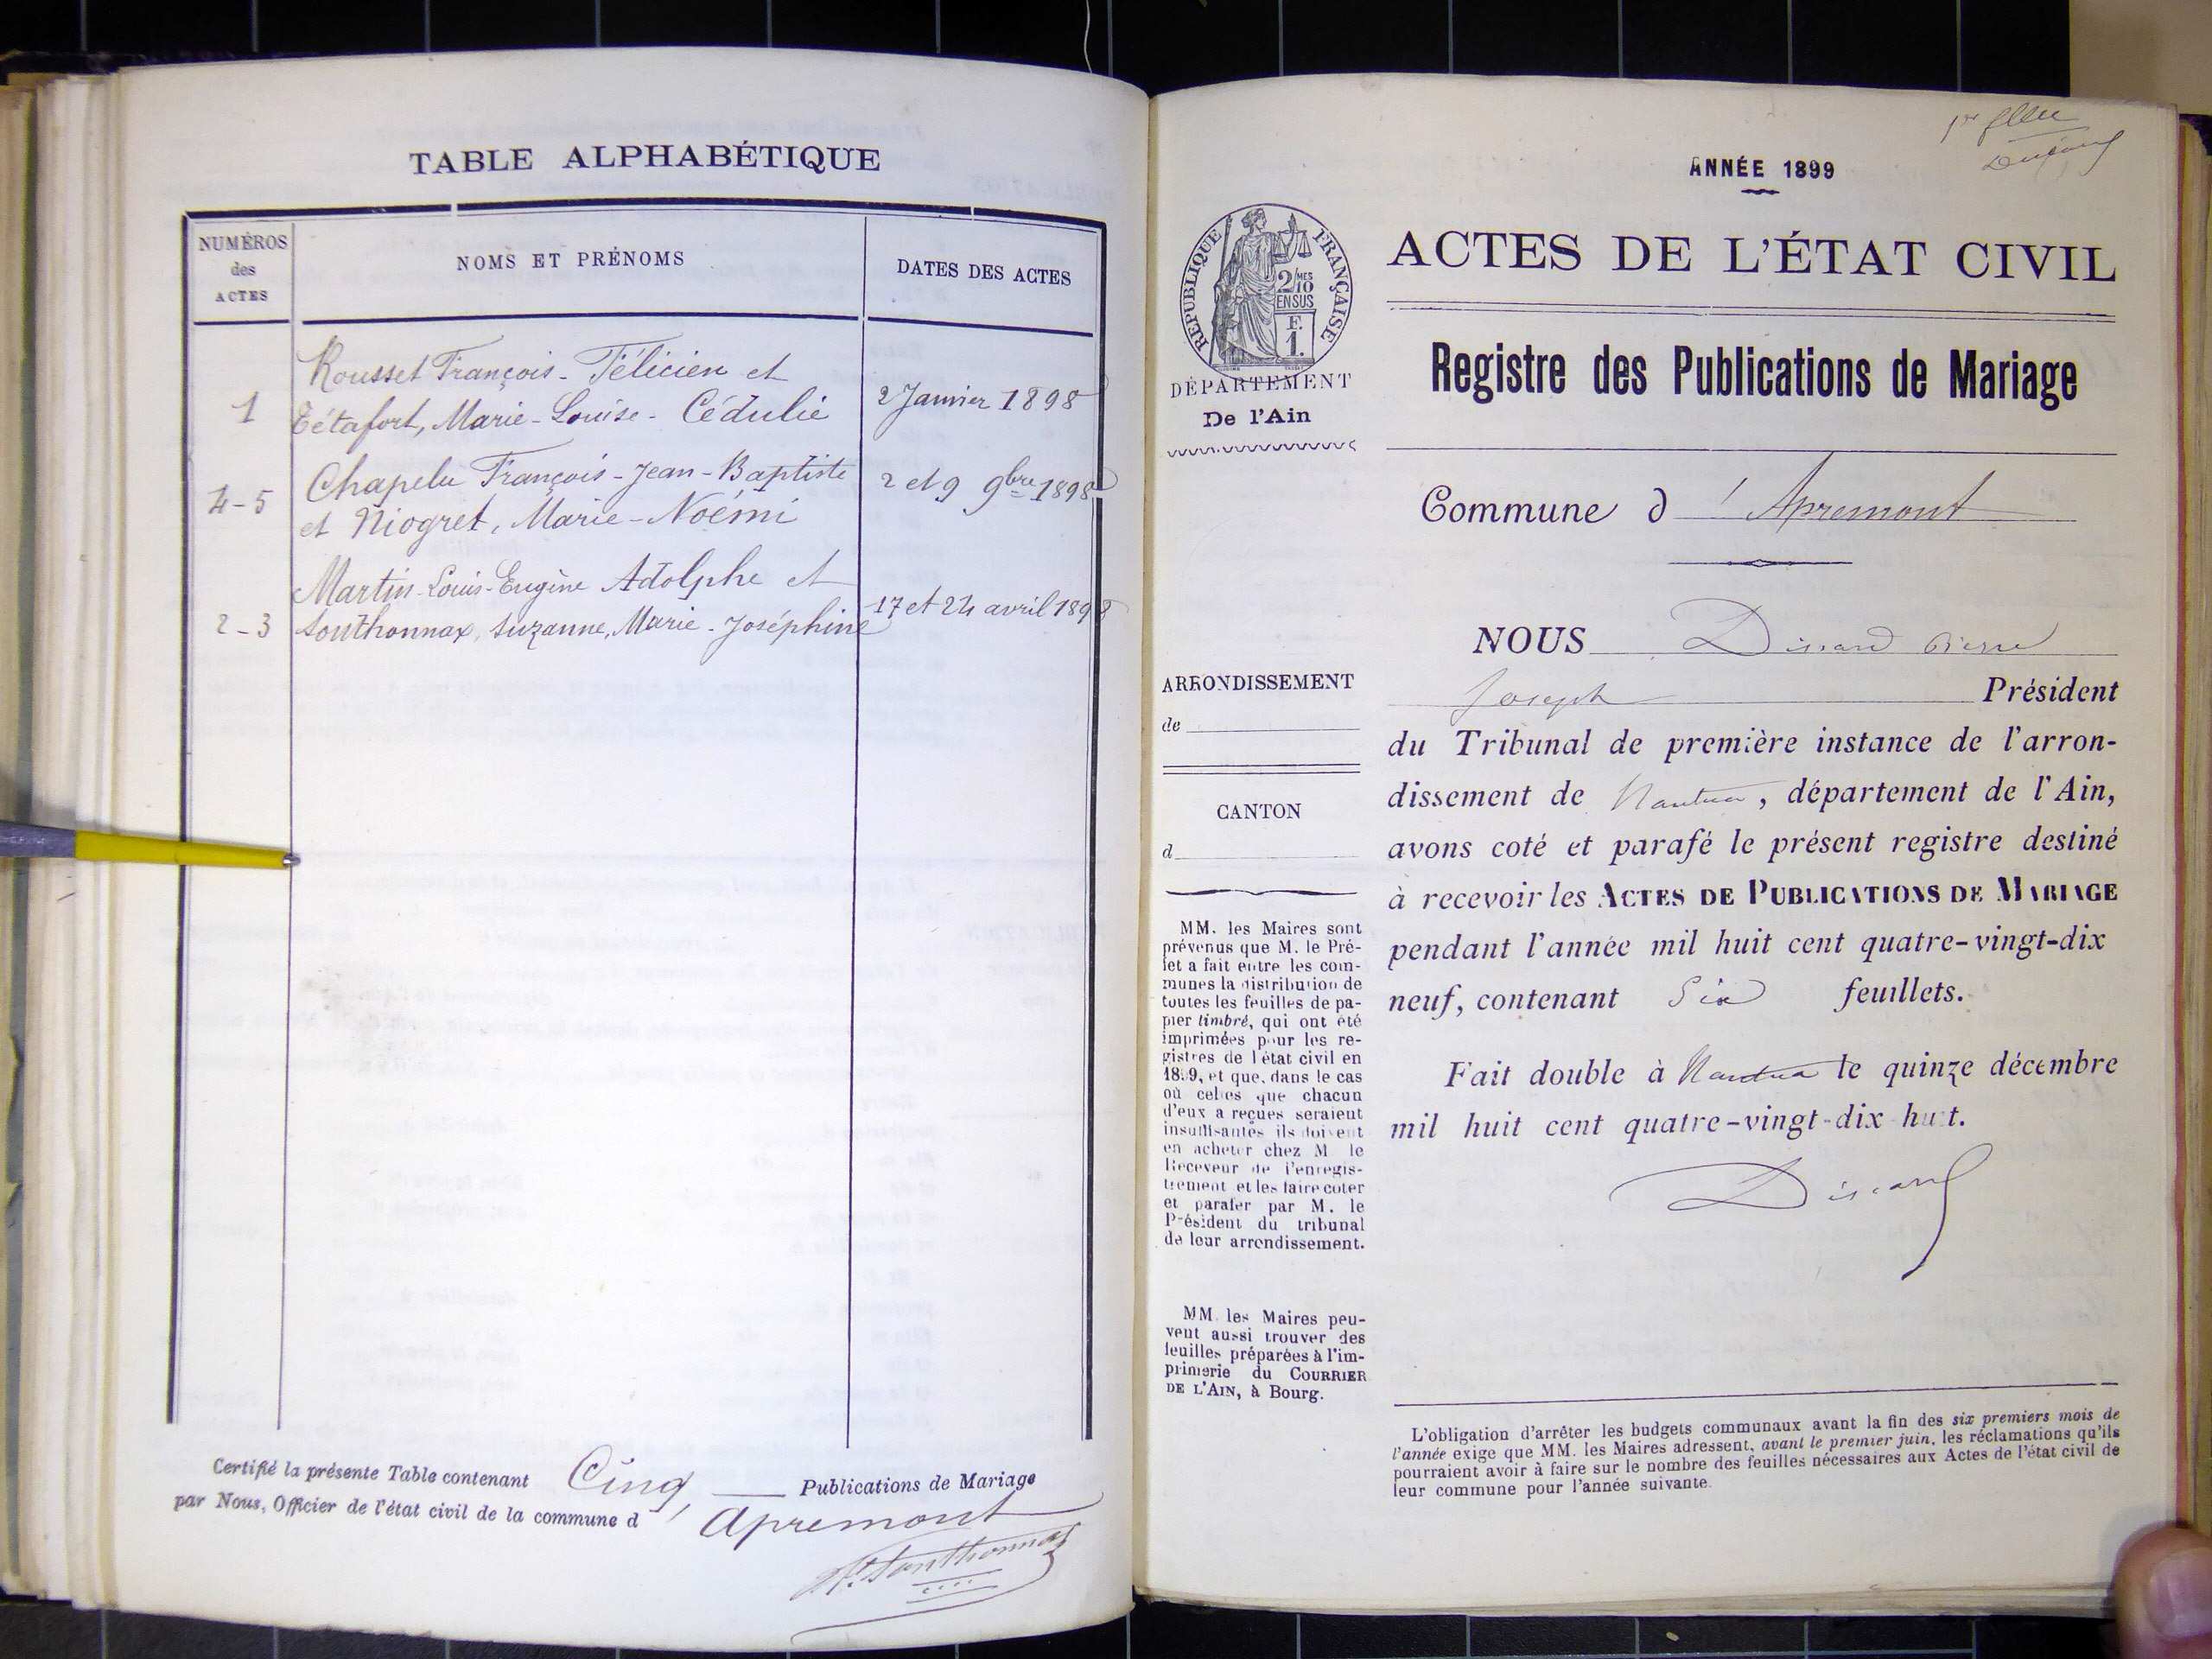 TABLE ALPHABÉTIQUE
NUMÉROS
des
ACTES
NOMS ET PRÉNOMS
DATES DES ACTES
Rousset François-Félicien et
1 Tétafort, Marie-Louise-Cédulie 2 Janvier 1898
Chapelu François-Jean-Baptiste
4-5 2 et 9 9bre 1898
et Niogret, Marie-Noémi
Martin-Louis-Eugène Adolphe et
2-3 Southonnax, Suzanne, Marie-Joséphine 17 et 24 avril 1898
Certifié la présente Table contenant Cinq Publications de Mariage
par Nous, Officier de l'état civil de la commune d'Apremont
Southonnax
1er
ANNÉE 1899
RÉPUBLIQUE FRANÇAISE
2/10
MES
EN SUS
F.
1.
DÉPARTEMENT
De l'Ain
ACTES DE L'ÉTAT CIVIL
Registre des Publications de Mariage
Commune d'Apremont
NOUS Pierre
Joseph Président
du Tribunal de première instance de l'arron-
dissement de Nantua, département de l'Ain,
avons coté et parafé le présent registre destiné
à recevoir les ACTES DE PUBLICATIONS DE MARIAGE
pendant l'année mil huit cent quatre-vingt-dix
neuf, contenant Six feuillets.
Fait double à Nantua le quinze décembre
mil huit cent quatre-vingt-dix-huit.
ARRONDISSEMENT
de
CANTON
d
MM. les Maires sont
prévenus que M. le Pré-
fet a fait entre les com-
munes la distribution de
toutes les feuilles de pa-
pier timbré, qui ont été
imprimées pour les re-
gistres de l'état civil en
1899, et que, dans le cas
où celles que chacun
d'eux a reçues seraient
insuffisantes ils doivent
en acheter chez M. le
Receveur de l'enregis-
trement et les faire coter
et parafer par M. le
Président du tribunal
de leur arrondissement.
MM. les Maires peu-
vent aussi trouver des
feuilles préparées à l'im-
primerie du COURRIER
DE L'AIN, à Bourg.
L'obligation d'arrêter les budgets communaux avant la fin des six premiers mois de
l'année exige que MM. les Maires adressent, avant le premier juin, les réclamations qu'ils
pourraient avoir à faire sur le nombre des feuilles nécessaires aux Actes de l'état civil de
leur commune pour l'année suivante.